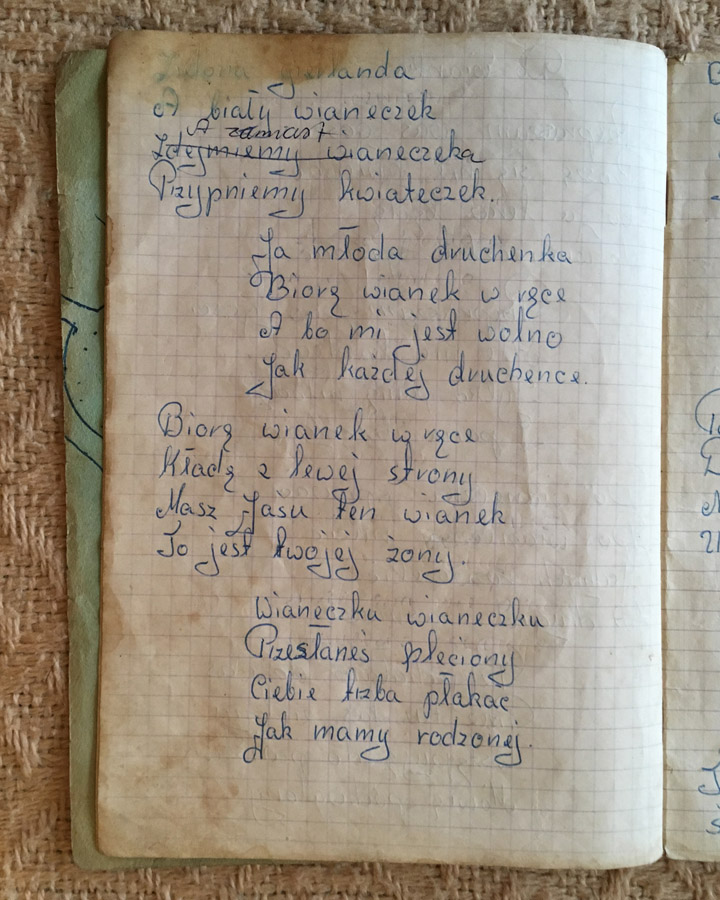 Zielona girlanda
A biały wianeczek
A zamiast
Zdejmiemy wianeczka
Przypniemy kwiateczek.
Ja młoda druchenka
Biorę wianek w ręce
A bo mi jest wolno
Jak każdej druchence.
Biorę wianek w ręce
Kładę z lewej strony
Masz Jasiu ten wianek
To jest twojej żony.
Wianeczku wianeczku
Przestaneś pleciony
Ciebie trzba płakać
Jak mamy rodzonej.